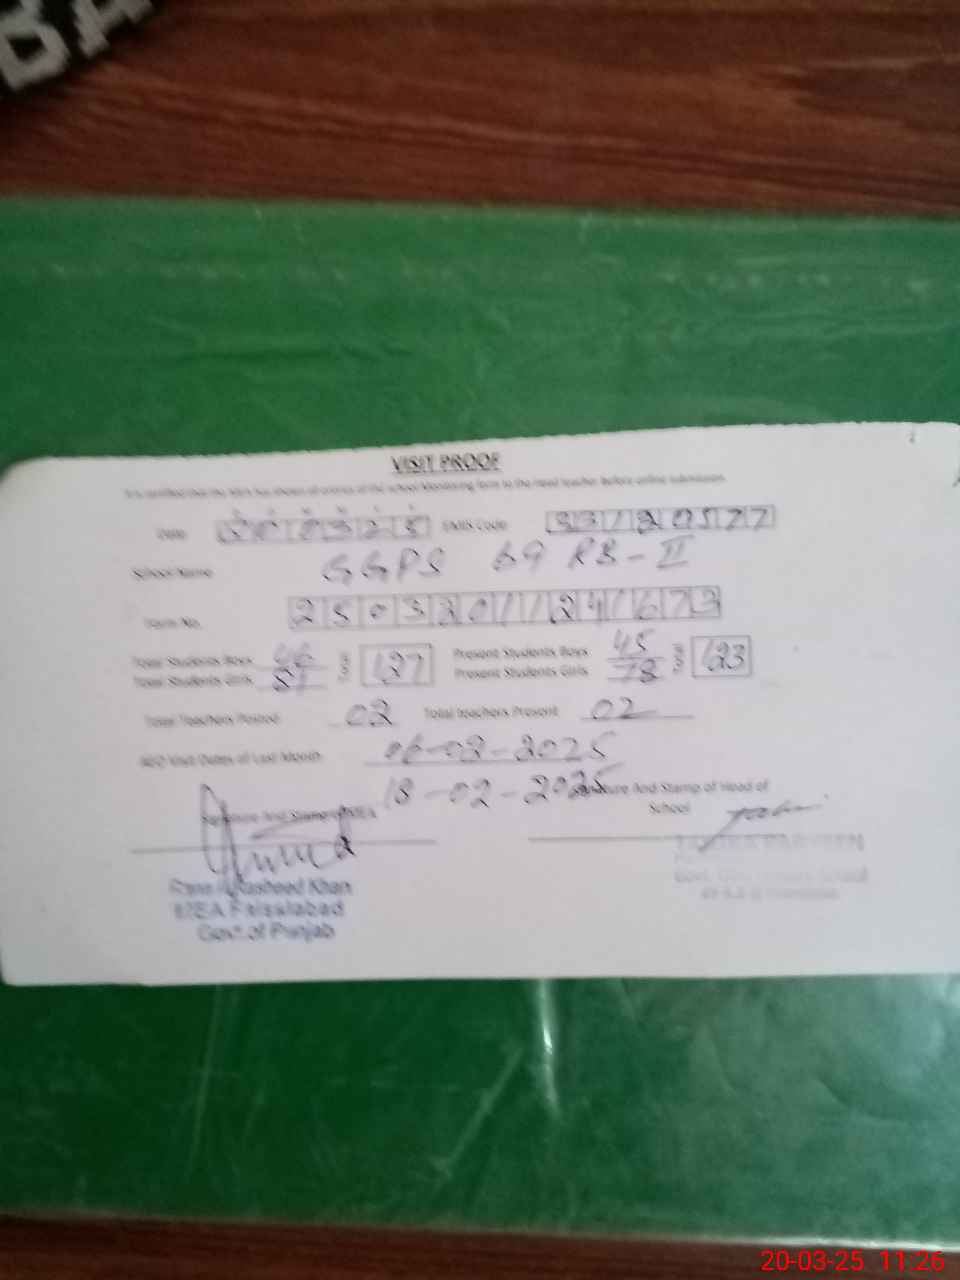 VISIT PROOF
It is certified that the MEA has shown all entries of the school Monitoring form to the Head teacher before online submission.
Date 200325 EMIS Code 33120577
School Name GGPS 69 RB-II
Form No. 25032011241673
Total Students Boys 46 127 Present Students Boys 45 123
Total Students Girls 81 Present Students Girls 78
Total Teachers Posted 02 Total teachers Present 02
AEO Visit Dates of Last Month 06-02-2025
18-02-2025
Signature And Stamp of MEA
Signature And Stamp of Head of
School
Rasheed Khan
MEA Faisalabad
Govt. of Punjab
20-03-25 11:26